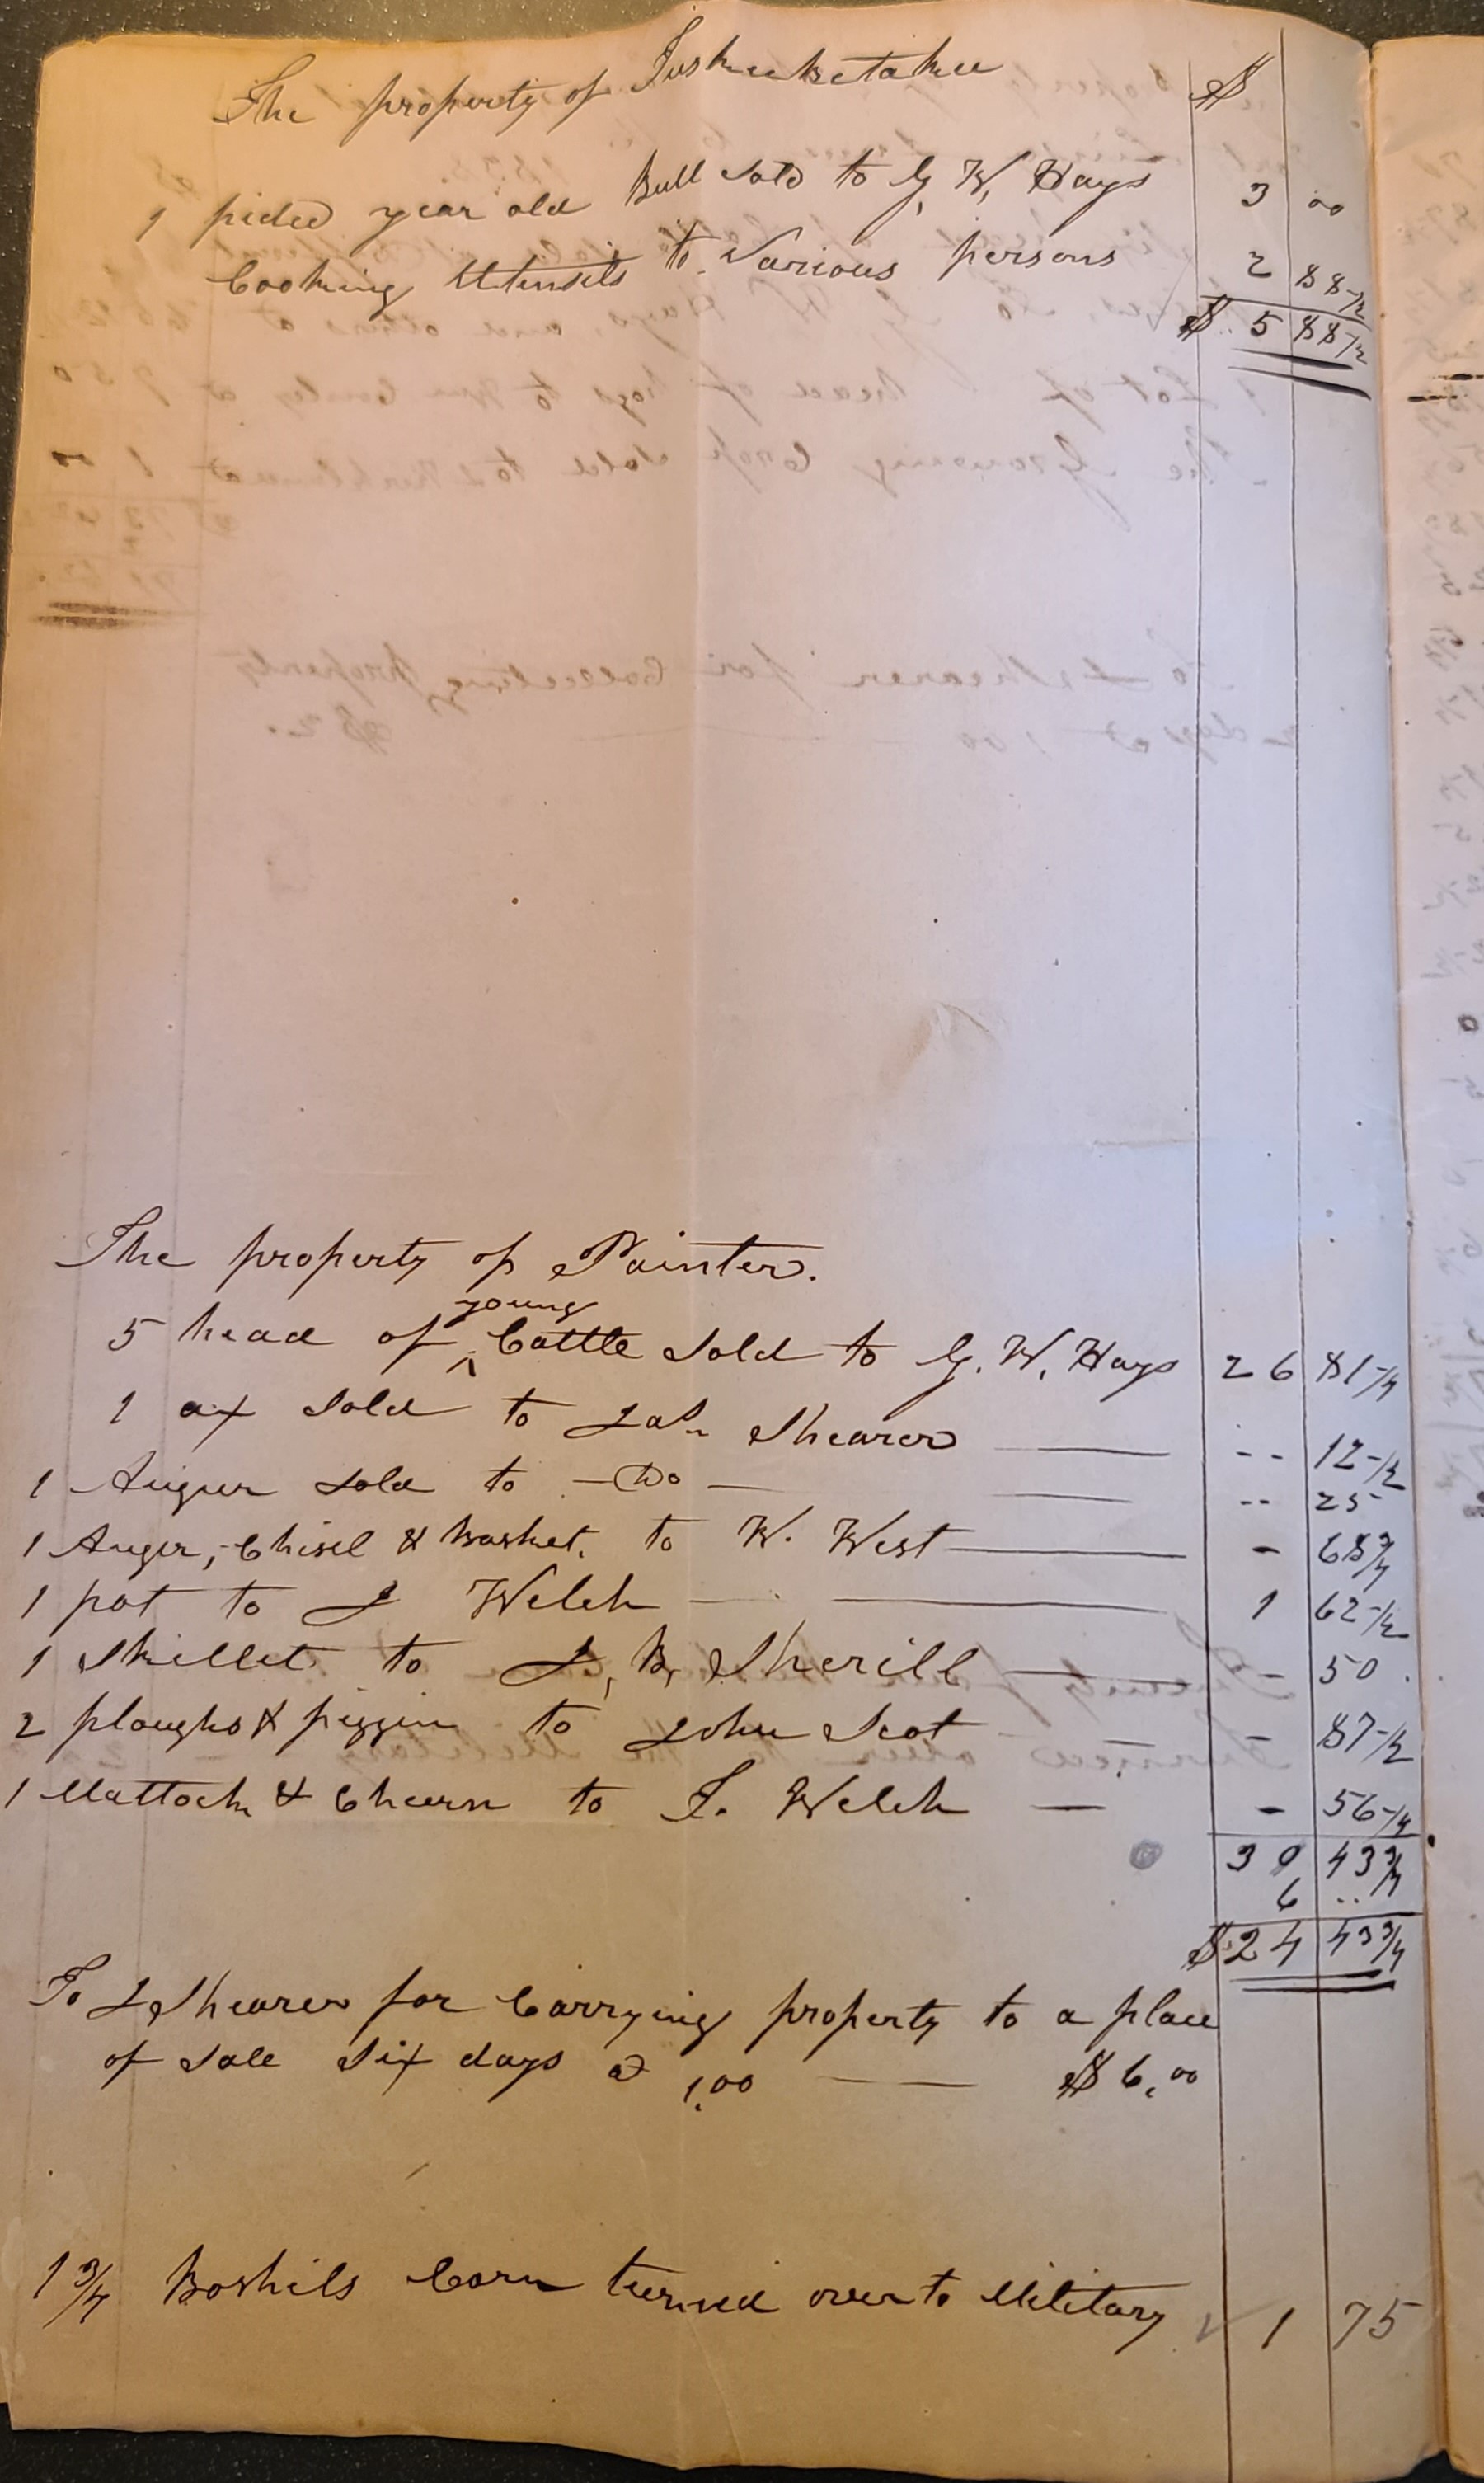 The property of Tuskeeketahee $
1 pided year old Bull sold to G, W, Hays 3 00
Cooking Utensils to Various persons 2 88 1/2
$ 5 88 1/2
The property of Painter.
5 head of ^young Cattle Sold to G. W. Hays 26 81 1/4
1 ax Sold to Jas. Shearer — -- 12 1/2
1 Augur sold to — Do — -- 25
1 Auger, Chisel & basket. to W. West — - 68 3/4
1 pot to J Welch — 1 62 1/2
1 Skillet to J, B, Sherill — - 50
2 ploughs & piggin to John Scot - 87 1/2
1 Mattock & Churn to J. Welch — - 56 1/4
30 43 3/4
6 ..
$ 24 43 3/4
To J Shearer for Carrying property to a place
of Sale Six days @ 1,00 — $ 6,00
1 3/4 Boshils Corn turned over to Military ✓ 1 75